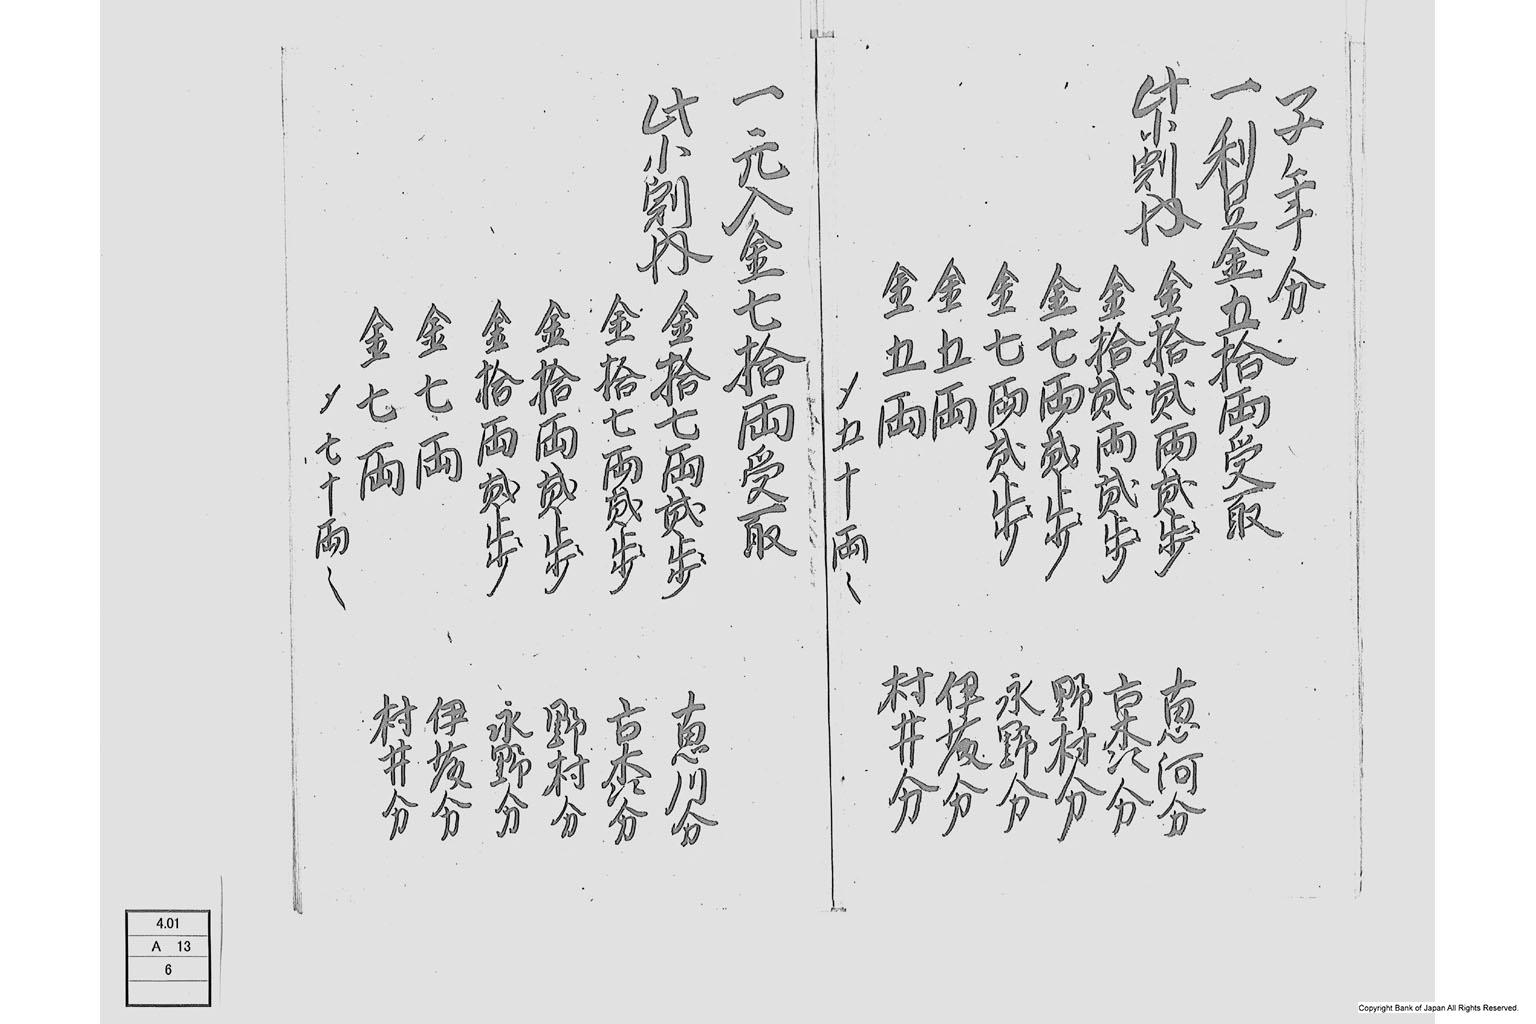 子年分
一利足金五拾両受取
此小割内
金拾弐両弐歩 恵河分
金拾弐両弐歩 分
金七両弐歩 野村分
金七両弐歩 永野分
金五両 伊藤分
金五両 村井分
〆五十両
一元入金七拾両受取
此小割内
金拾七両弐歩 恵川分
金拾七両弐歩 分
金拾両弐歩 野村分
金拾両弐歩 永野分
金七両 伊藤分
金七両 村井分
〆七十両
4.01
A 13
6
Copyright Bank of Japan All Rights Reserved.